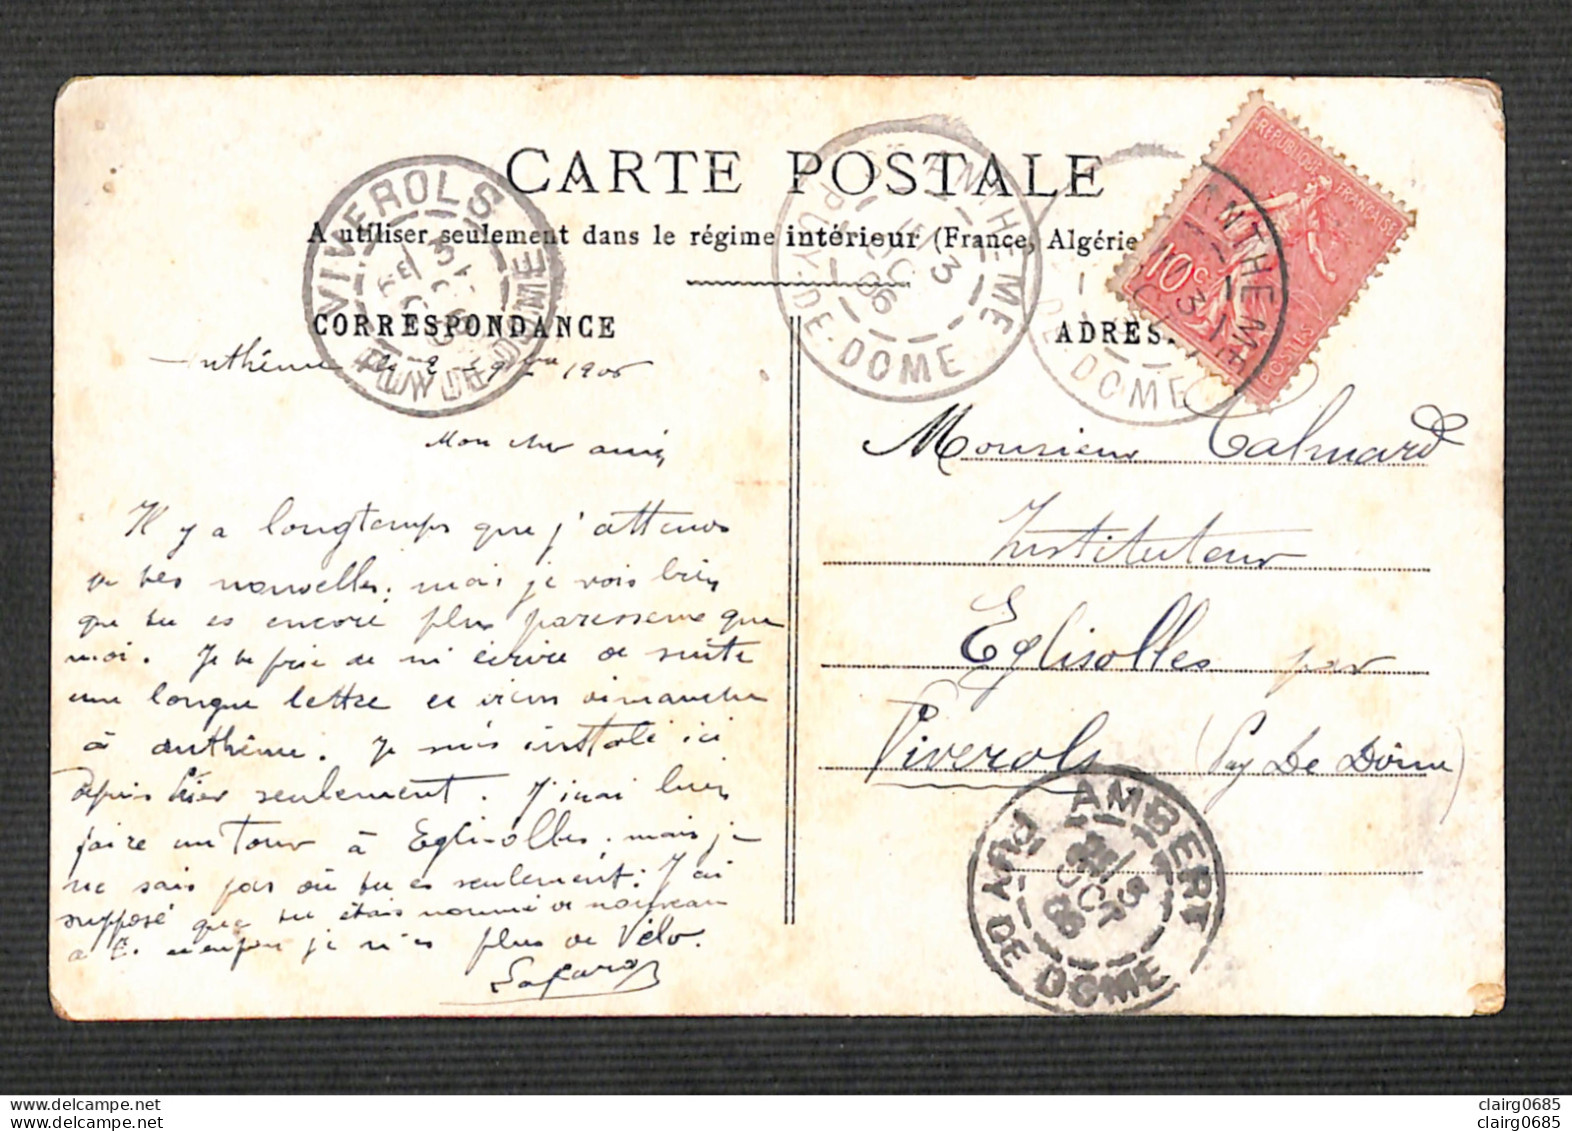 CARTE POSTALE
A utiliser seulement dans le régime intérieur (France, Algérie
CORRESPONDANCE
ADRES
VIVEROLS
PUY-DE-DOME
ANTHEME
PUY-DE-DOME
13
OC
06
ANTHEME
DE-DOME
REPUBLIQUE FRANÇAISE
10c
POSTES
Anthême le 2 1906
Mon cher ami,
Il y a longtemps que j'attends
de tes nouvelles; mais je vois bien
que tu es encore plus paresseux que
moi. Je te prie de m'écrire de suite
une longue lettre et viens dimanche
à Anthême. Je suis installé ici
depuis hier seulement. J'irai bien
faire un tour à Eglisolles. mais je
ne sais pas où tu es seulement. J'ai
supposé que tu étais nommé de nouveau
à E. je n'ai plus de Vélo.
Monsieur Calmard
Instituteur
Eglisolles par
Viverols (Puy De Dôme)
AMBERT
PUY DE DOME
OCT
06
delcampe.net
delcampe.net
clairg0685
clairg0685